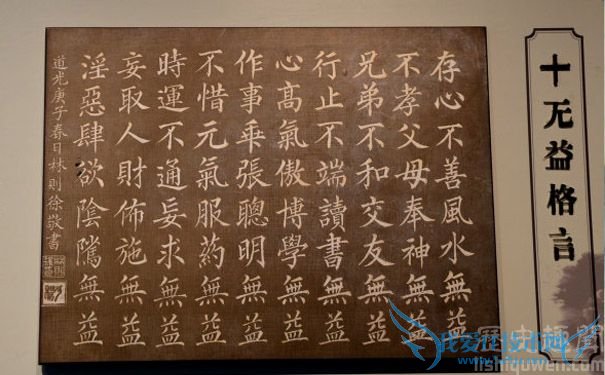 十无益格言
存心不善風水無益
不孝父母奉神無益
兄弟不和交友無益
行止不端讀書無益
心高氣傲博學無益
作事乖張聰明無益
不惜元氣服葯無益
時運不通妄求無益
妄取人財佈施無益
淫惡肆欲陰騭無益
道光庚子春日林則徐敬書
lishiquwen.com